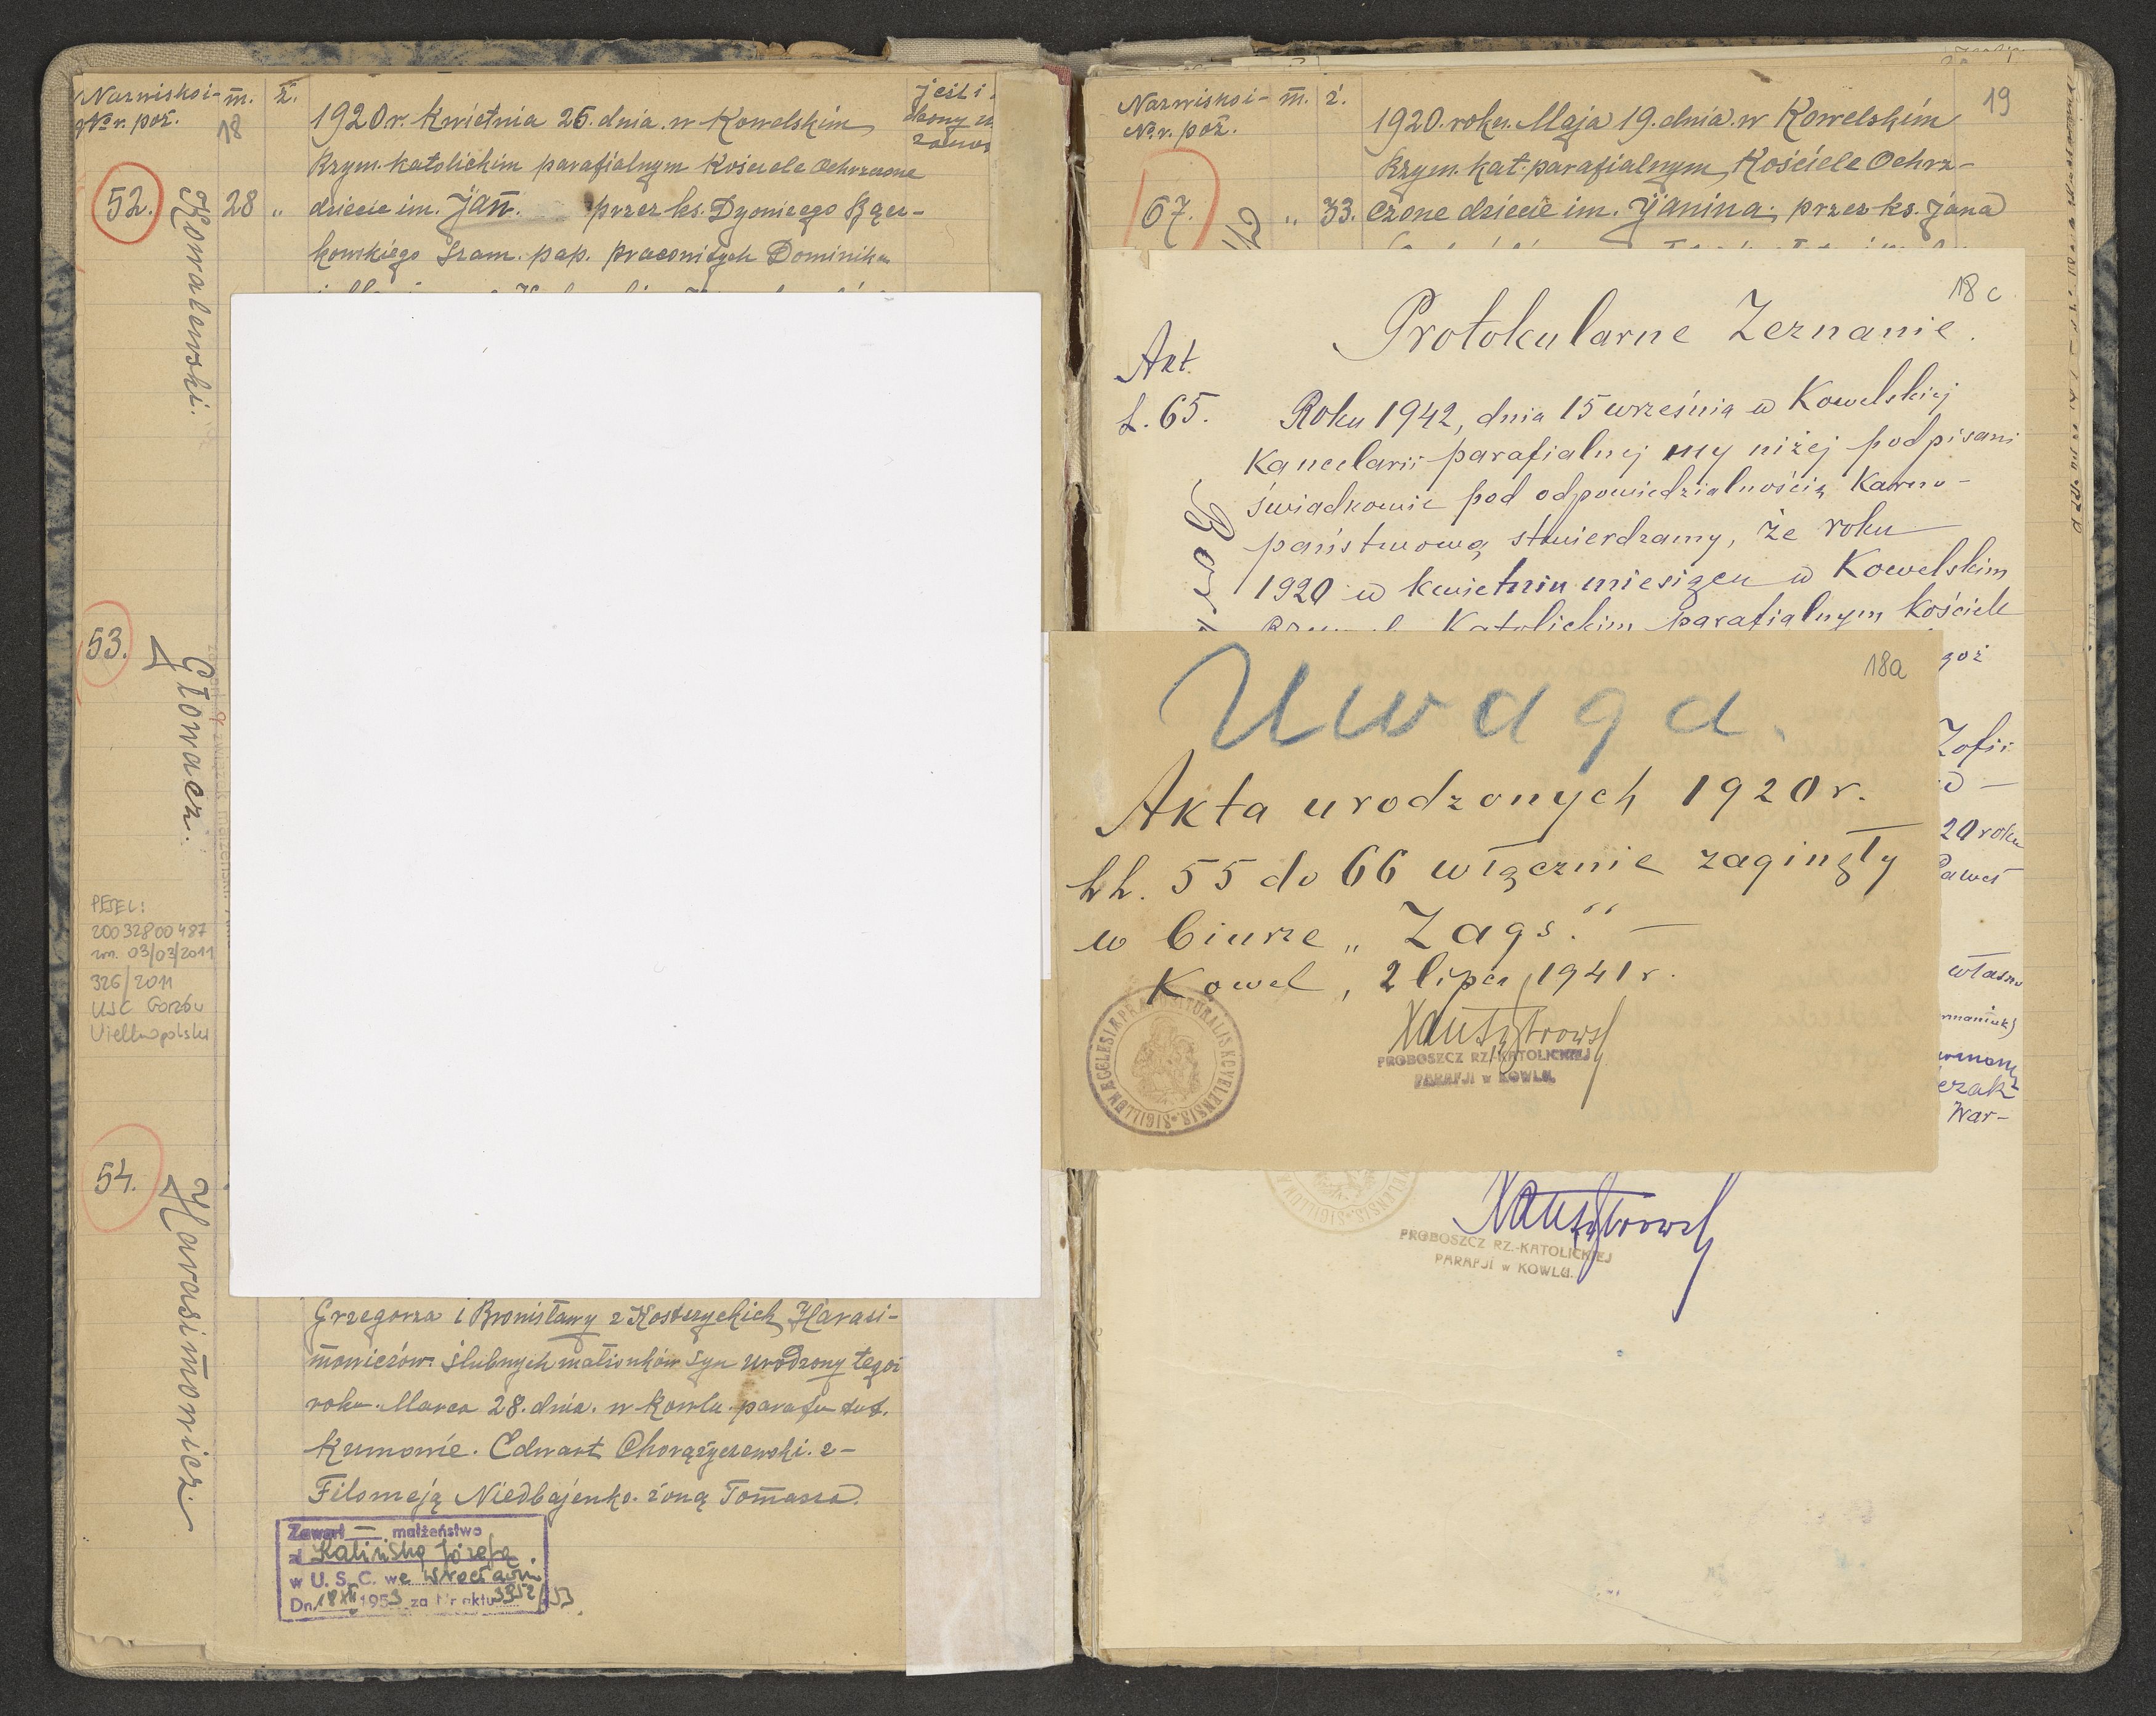 Nazwisko i m. ż.
No r. poż.
18
1920 r. Kwietnia 26. dnia. w Kowelskim
Rzym. katolickim parafialnym Kościele Ochrzczone
52.
Kowalewski.
28 „
dziecie im. Jan. przez ks. Dyonizego
kowskiego Sram. pap. praconitych Dominika
53.
Głowacz.
PESEL:
20032800487
zm. 03/03/2011
326/2011
USC Gorzów
Wielkopolski
54.
Harasimowicz.
Grzegorza i Bronisławy z Kosteryckich Harasi-
mowiczów. ślubnych małżonków syn urodzony tegoż
roku. Marca 28. dnia. w Kowlu. parafii tut.
Kumowie. Edwart Chorążyczewski. z-
Filomeją Niedbajenko. żoną Tomasza.
Zawarł — małżeństwo
z Kalińską Józefą
w U. S. C. we Wrocławiu
Dn. 18 XII 1953 za Nr aktu 3352/53
Nazwisko i m. ż.
No. r. poż.
19
1920. roku. Maja 19. dnia. w Kowelskim
Rzym. kat. parafialnym Kościele Ochrz-
67.
„ 33.
czone dziecie im. Janina. przez ks. Jana
18 c
Protokularne Zeznanie.
Akt.
L. 65.
Roku 1942, dnia 15 września w Kowelskiej
Kancelarii parafialnej my niżej podpisani
świadkowie pod odpowiedzialnością Karno-
państwową stwierdzamy, że roku
1920 w kwietniu miesiącu w Kowelskim
Katolickim parafialnym kościele
goż
Zofii
20 roku
Paweł
własno
czak
War-
18a
Uwaga.
Akta urodzonych 1920 r.
LL. 55 do 66 włącznie zaginęły
w biurze „Zags". —
Kowel, 2 lipca 1941 r.
SIGILLUM ECCLESIÆ PRÆPOSITURALIS KOVELENSIS
PROBOSZCZ RZ.-KATOLICKIEJ
PARAFJI w KOWLU.
PROBOSZCZ RZ.-KATOLICKIEJ
PARAFJI w KOWLU.